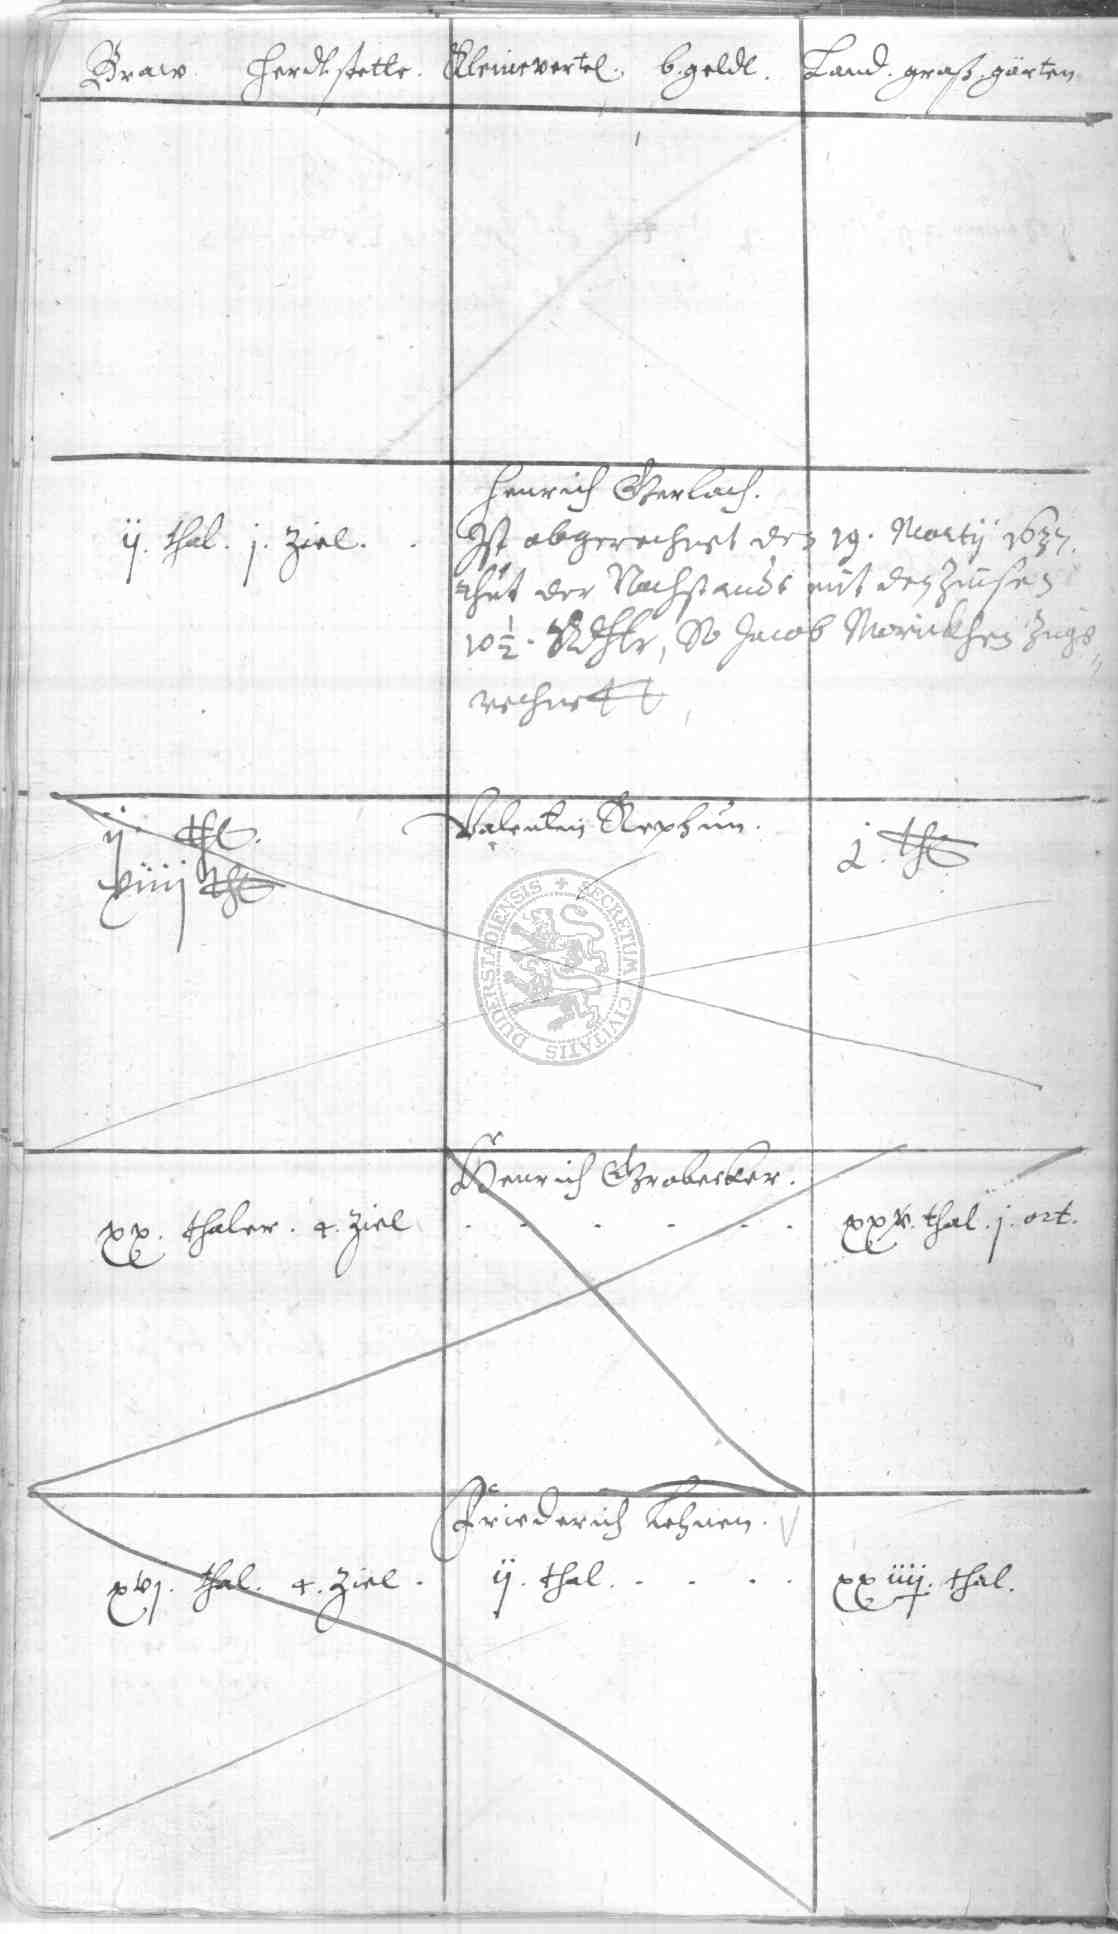 Braw. Herdt stette. Kleinevertel. b. geldt. Land. graß. gärten
Henrich Gerlach.
ij. thal. j. Ziel.
Ist abgerechnet den 19. Martij 1637.
thut der Nachstandt mit den Zinsen
10 1/2. Rthlr, So Jacob zuge=
rechnett
ij. thl. Valentin j. thl
viiij thl
Henrich Grobecker.
xx. thaler. 4. Ziel xxv. thal. j. ort.
Friederich Lehnen.
xvj. thal. 4. Ziel. ij. thal. xxiiij. thal.
SECRETUM CIVITATIS DUDERSTADIENSIS